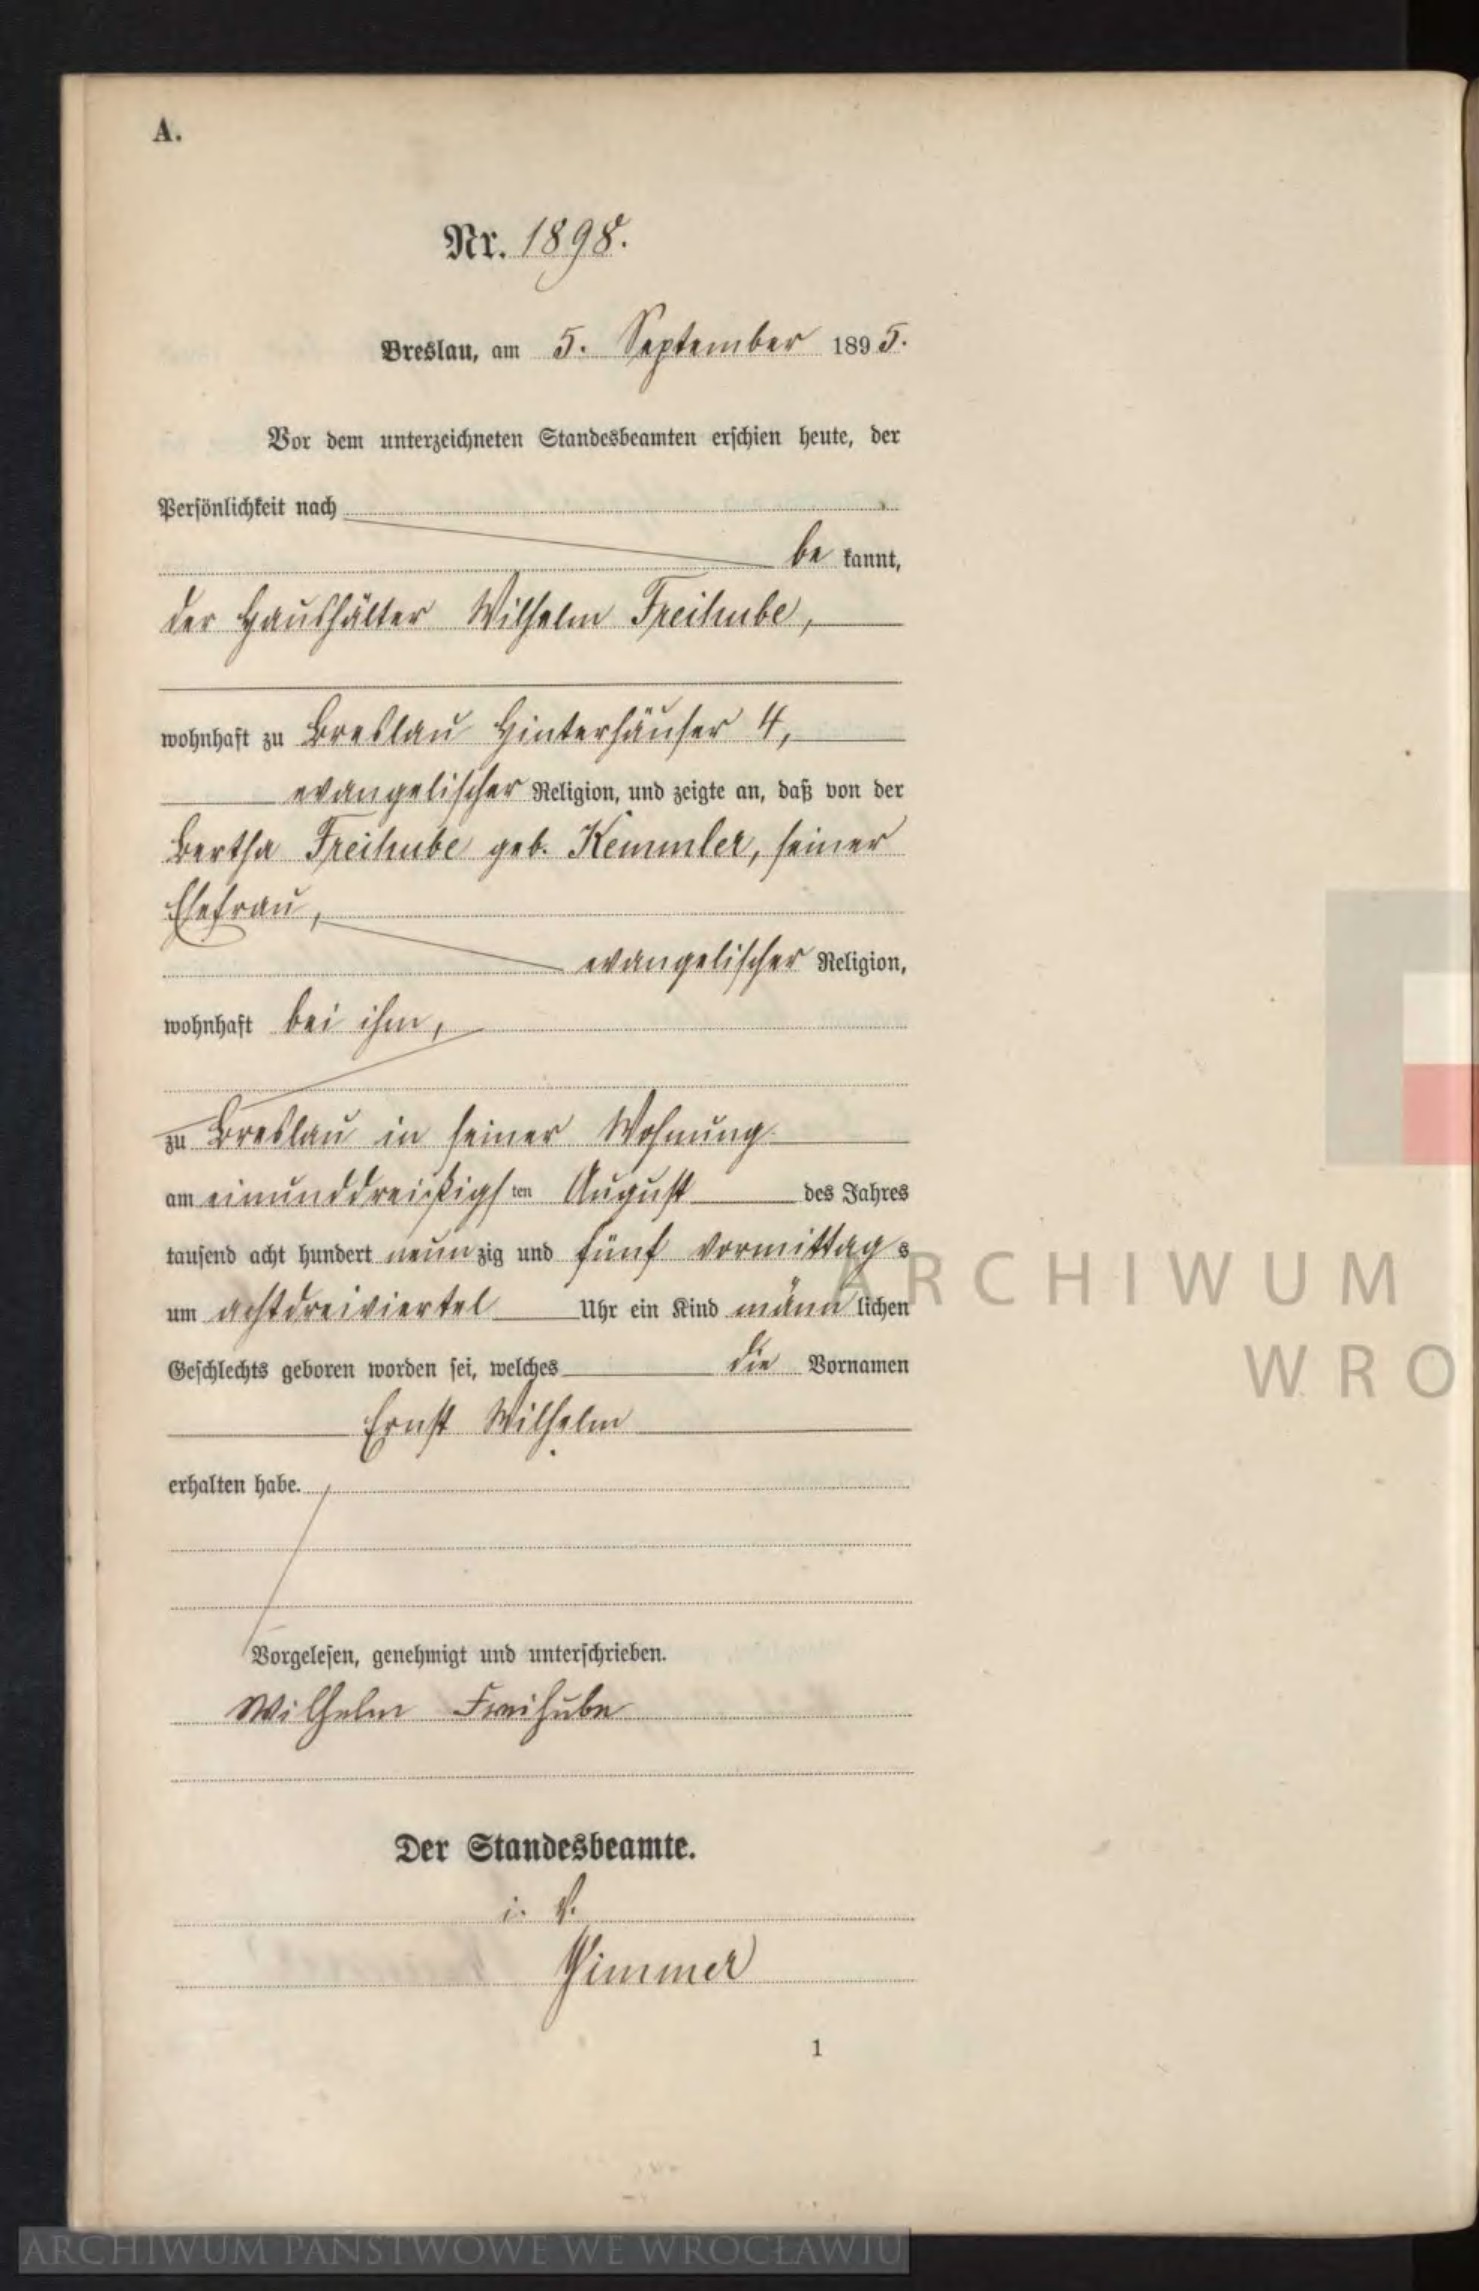 A.
Nr. 1898.
Breslau, am 5. September 1895.
Vor dem unterzeichneten Standesbeamten erschien heute, der
Persönlichkeit nach
be kannt,
der Haushälter Wilhelm Freihube,
wohnhaft zu Breslau Hinterhäuser 4,
evangelischer Religion, und zeigte an, daß von der
Bertha Freihube geb. Kemmler, seiner
Ehefrau,
evangelischer Religion,
wohnhaft bei ihm,
zu Breslau in seiner Wohnung
am einunddreißigsten August des Jahres
tausend acht hundert neunzig und fünf vormittags
um achtdreiviertel Uhr ein Kind männlichen
Geschlechts geboren worden sei, welches die Vornamen
Ernst Wilhelm
erhalten habe.
Vorgelesen, genehmigt und unterschrieben.
Wilhelm Freihube
Der Standesbeamte.
i. V.
1
ARCHIWUM
WRO
ARCHIWUM PAŃSTWOWE WE WROCŁAWIU